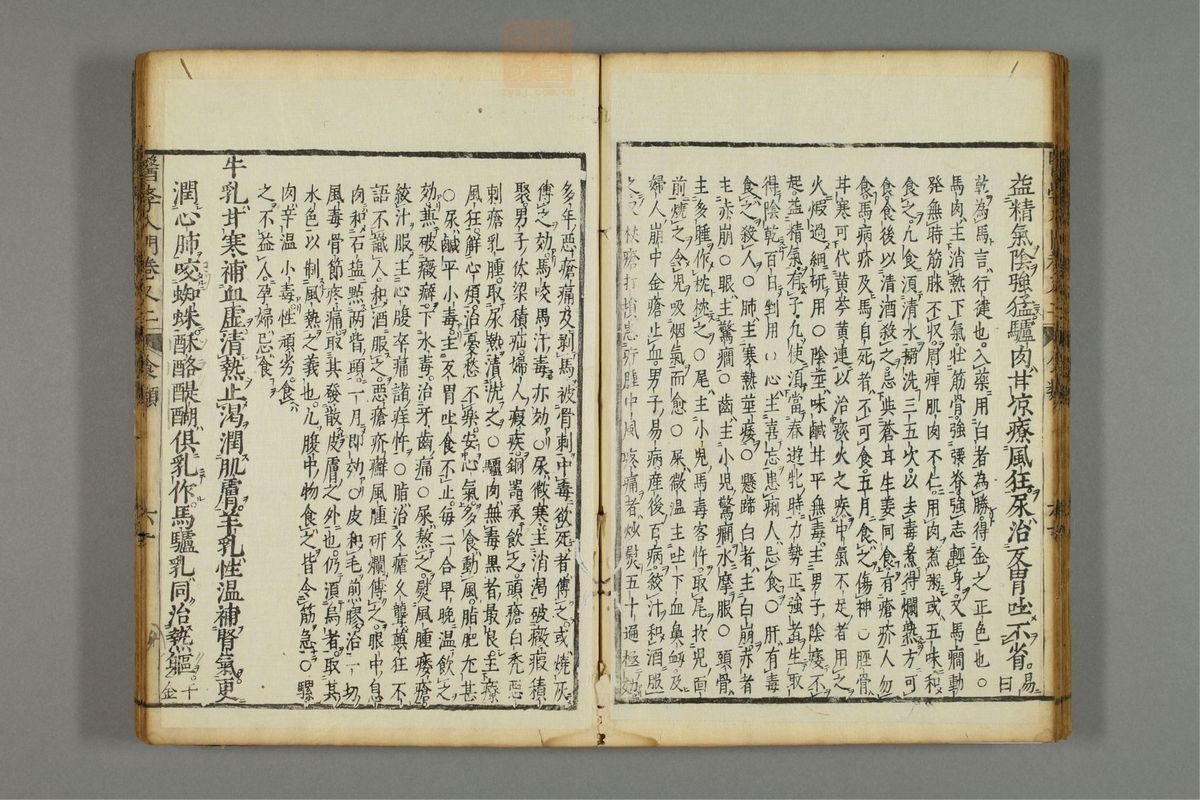 益精氣陰強猛驢肉甘凉療風狂尿治反胃吐不省易曰
乾為馬言行健也入藥用白者為勝得金之正色也○
馬肉主消熱下氣壯筋骨強腰脊強志輕身又馬癇動
発無時筋脉不収周痺肌肉不仁用肉煮粥或五味和
食之凡食須清水搦洗三五次以去毒煮得爛熟方可
食食後以清酒殺之忌與蒼耳生姜同食有瘡疥人勿
食馬病疥及馬自死者不可食五月食之傷神○脛骨
甘寒可代黄芩黄連以治痰火之疾中氣不足者用之
火煆過細研用○陰莖味鹹甘平無毒主男子陰痿不
起益精氣有子凡使須當春遊牝時力勢正強者生取
得陰乾百日剉用○心主喜忘患痢人忌食○肝有毒
食之殺人○肺主寒熱莖痿○懸蹄白者主白崩赤者
主赤崩○眼主驚癇○齒主小児驚癇水摩服○頭骨
主多睡作枕枕之○尾主小児馬毒客忤取尾於児面
前燒之令児吸烟氣而愈○屎微温主吐下血鼻衄及
婦人崩中金瘡止血男子易病産後百病絞汁和酒服
之杖瘡打損患疔腫中風疼痛者炒熨五十遍極効
多年悪瘡痛及剥馬被骨刺中毒欲死者傅之或燒灰
傅之効馬咬馬汗毒亦効○尿微寒主消渴破癥瘕積
聚男子伏梁積疝婦人瘕疾銅噐承飲之頭瘡白禿悪
刺瘡乳腫取尿熱漬洗之○驢肉無毒黒者最良主療
風狂觧心煩治憂愁不樂安心氣多食動風脂肥尤甚
○尿鹹平小毒主反胃吐食不止毎二合早晚温飲之
効兼破癥癖下水毒治牙齒痛○屎熬之熨風腫瘻瘡
絞汁服主心腹卒痛諸疰忤○脂治久瘡久聾兼狂不
語不識人和酒服之悪瘡疥癬風腫研爛傅之眼中息
肉和石塩點両眥頭一月即効○皮和毛煎膠治一切
風毒骨節疼痛取其發散皮膚之外也仍須烏者取其
水色以制風熱之義也凡腹中物食之皆令筋急○騾
肉辛温小毒性頑劣食
之不益人孕婦忌食
牛乳甘寒補血虚清熱止渴潤肌膚羊乳性温補腎氣更
潤心肺咬蜘蛛酥酪醍醐俱乳作馬驢乳同治熱軀千金
醫學入門卷又二 食類 六十